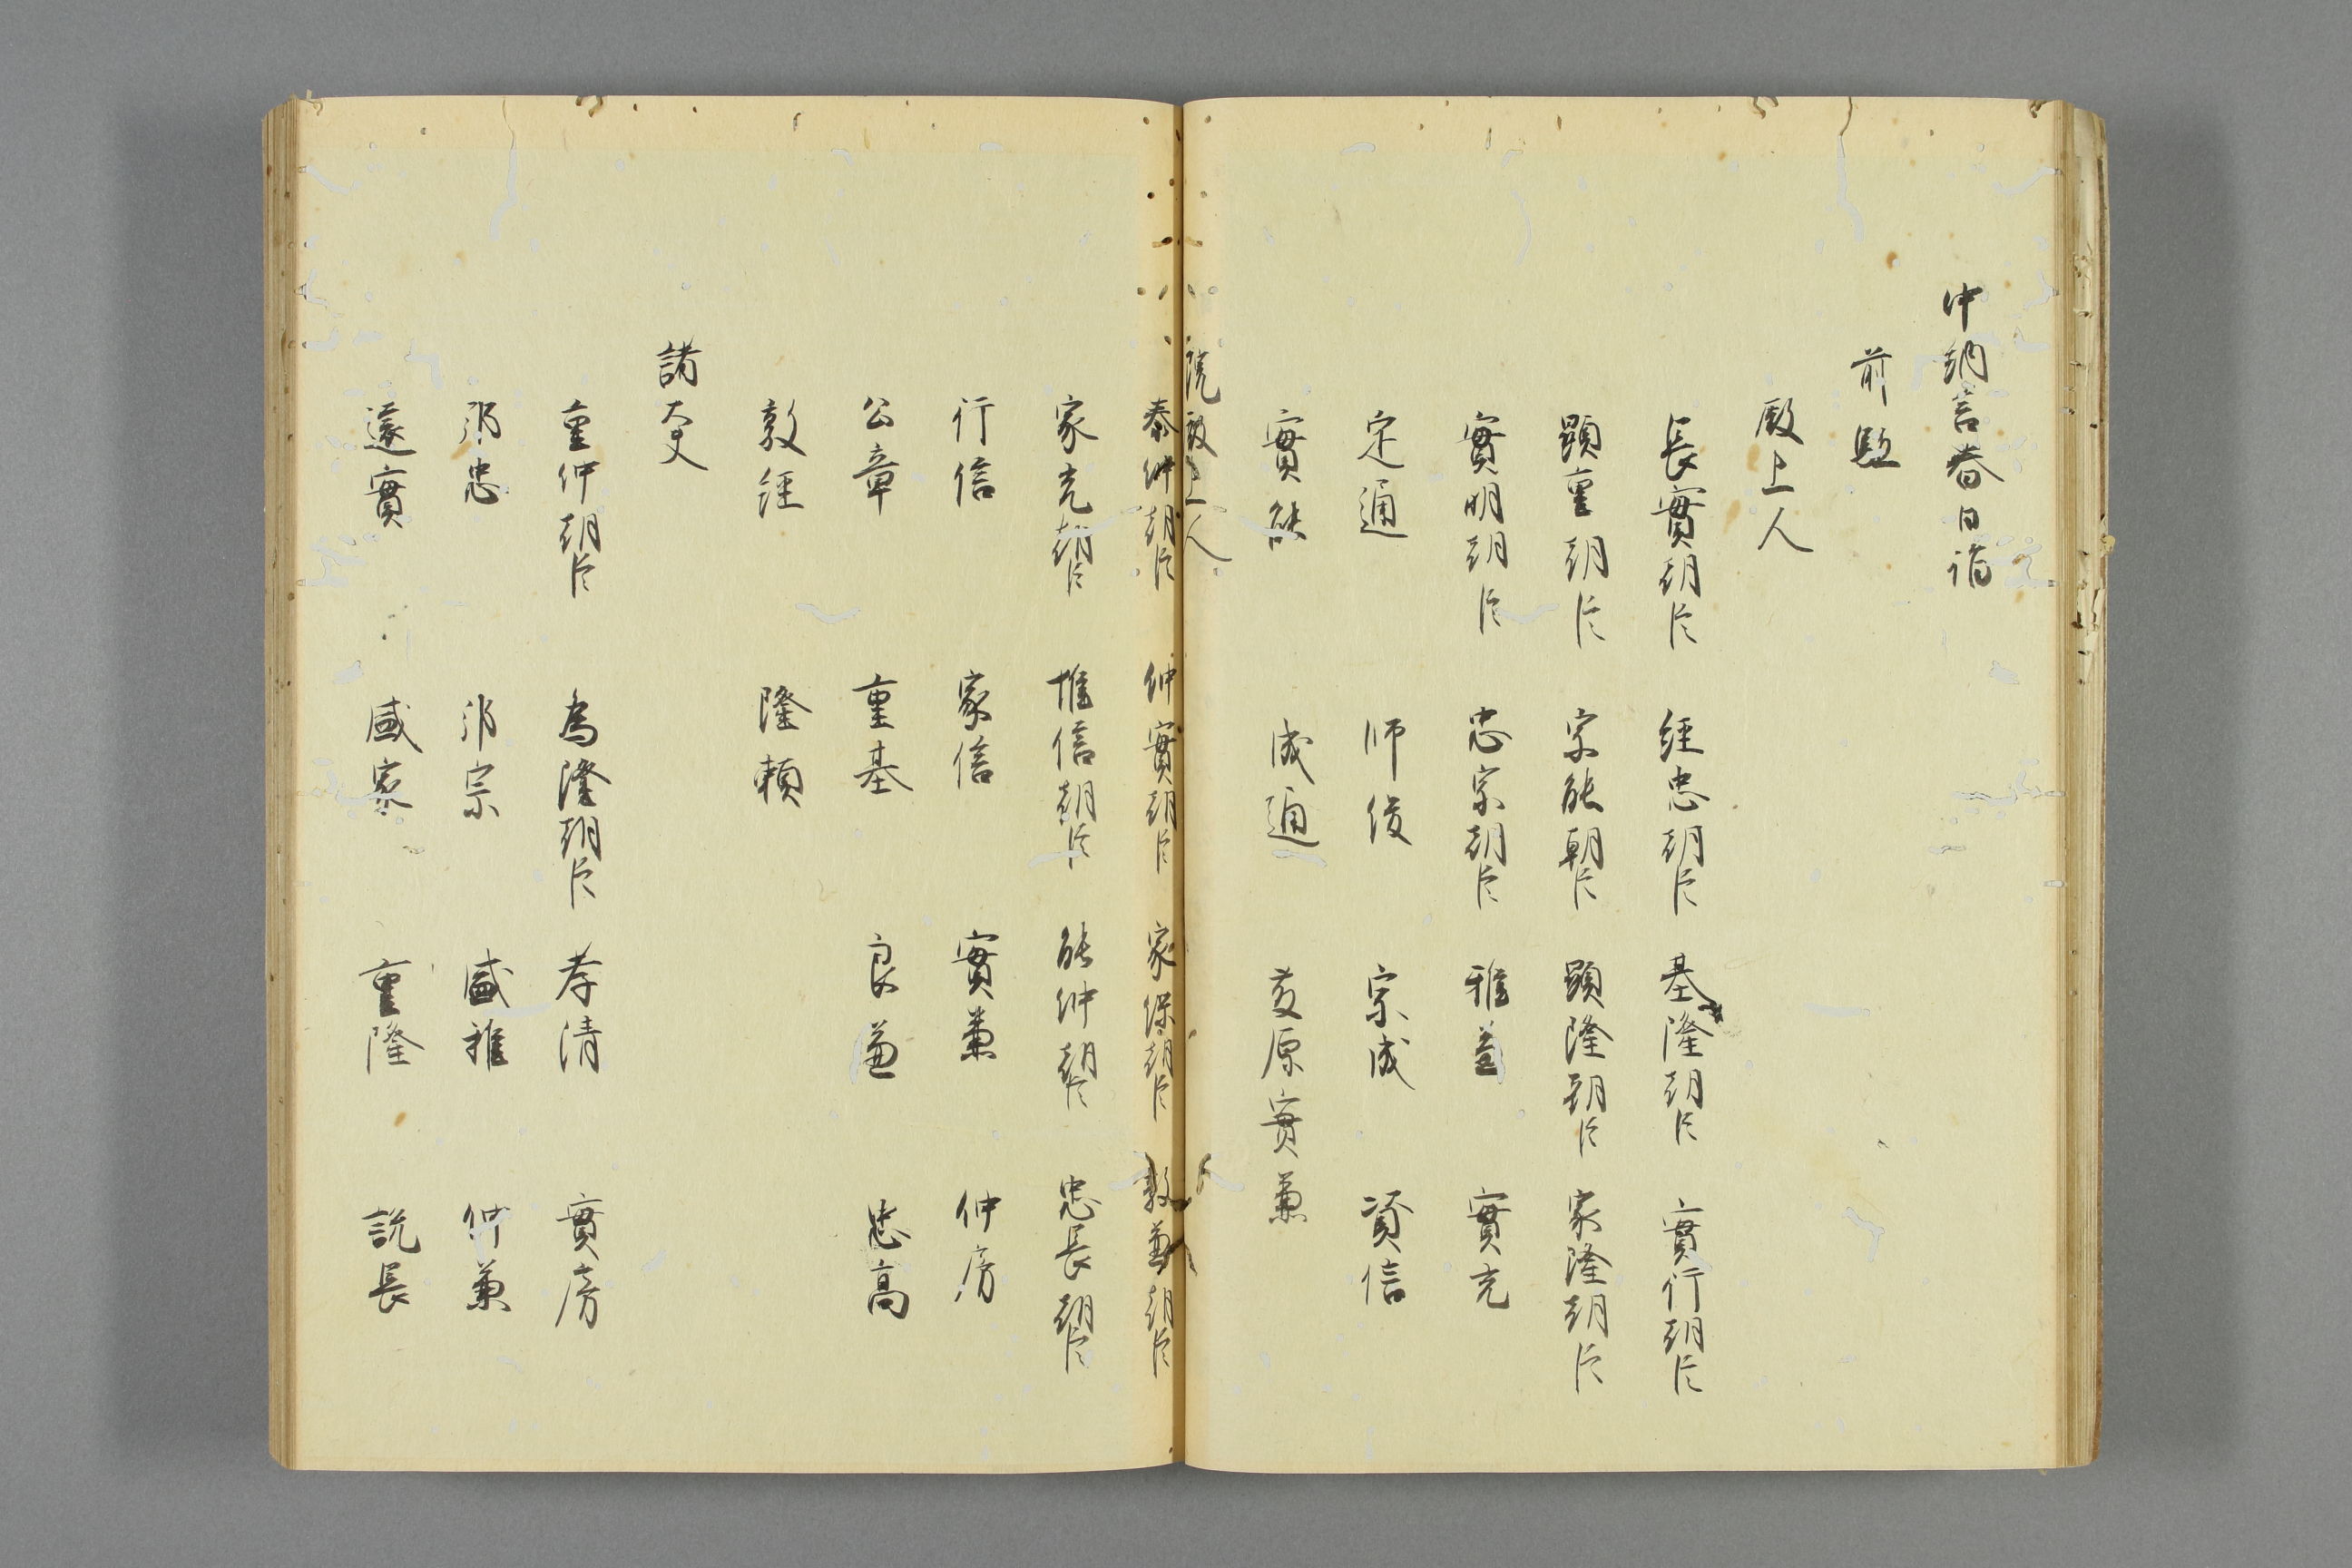 中納言春日詣
前駈
殿上人
長實朝臣 經忠朝臣 基隆朝臣 實行朝臣
顕重朝臣 宗能朝臣 顕隆朝臣 家隆朝臣
實明朝臣 忠宗朝臣 雅兼 實光
定通 師俊 宗成 資信
實能 成通 藤原實兼
院殿上人
泰仲朝臣 仲實朝臣 家保朝臣 敦兼朝臣
家光朝臣 惟信朝臣 能仲朝臣 忠長朝臣
行信 家信 實兼 仲房
公章 重基 良兼 忠高
敦経 隆頼
諸大夫
重仲朝臣 為隆朝臣 孝清 實房
邦忠 邦宗 盛雅 仲兼
遠實 盛家 重隆 説長